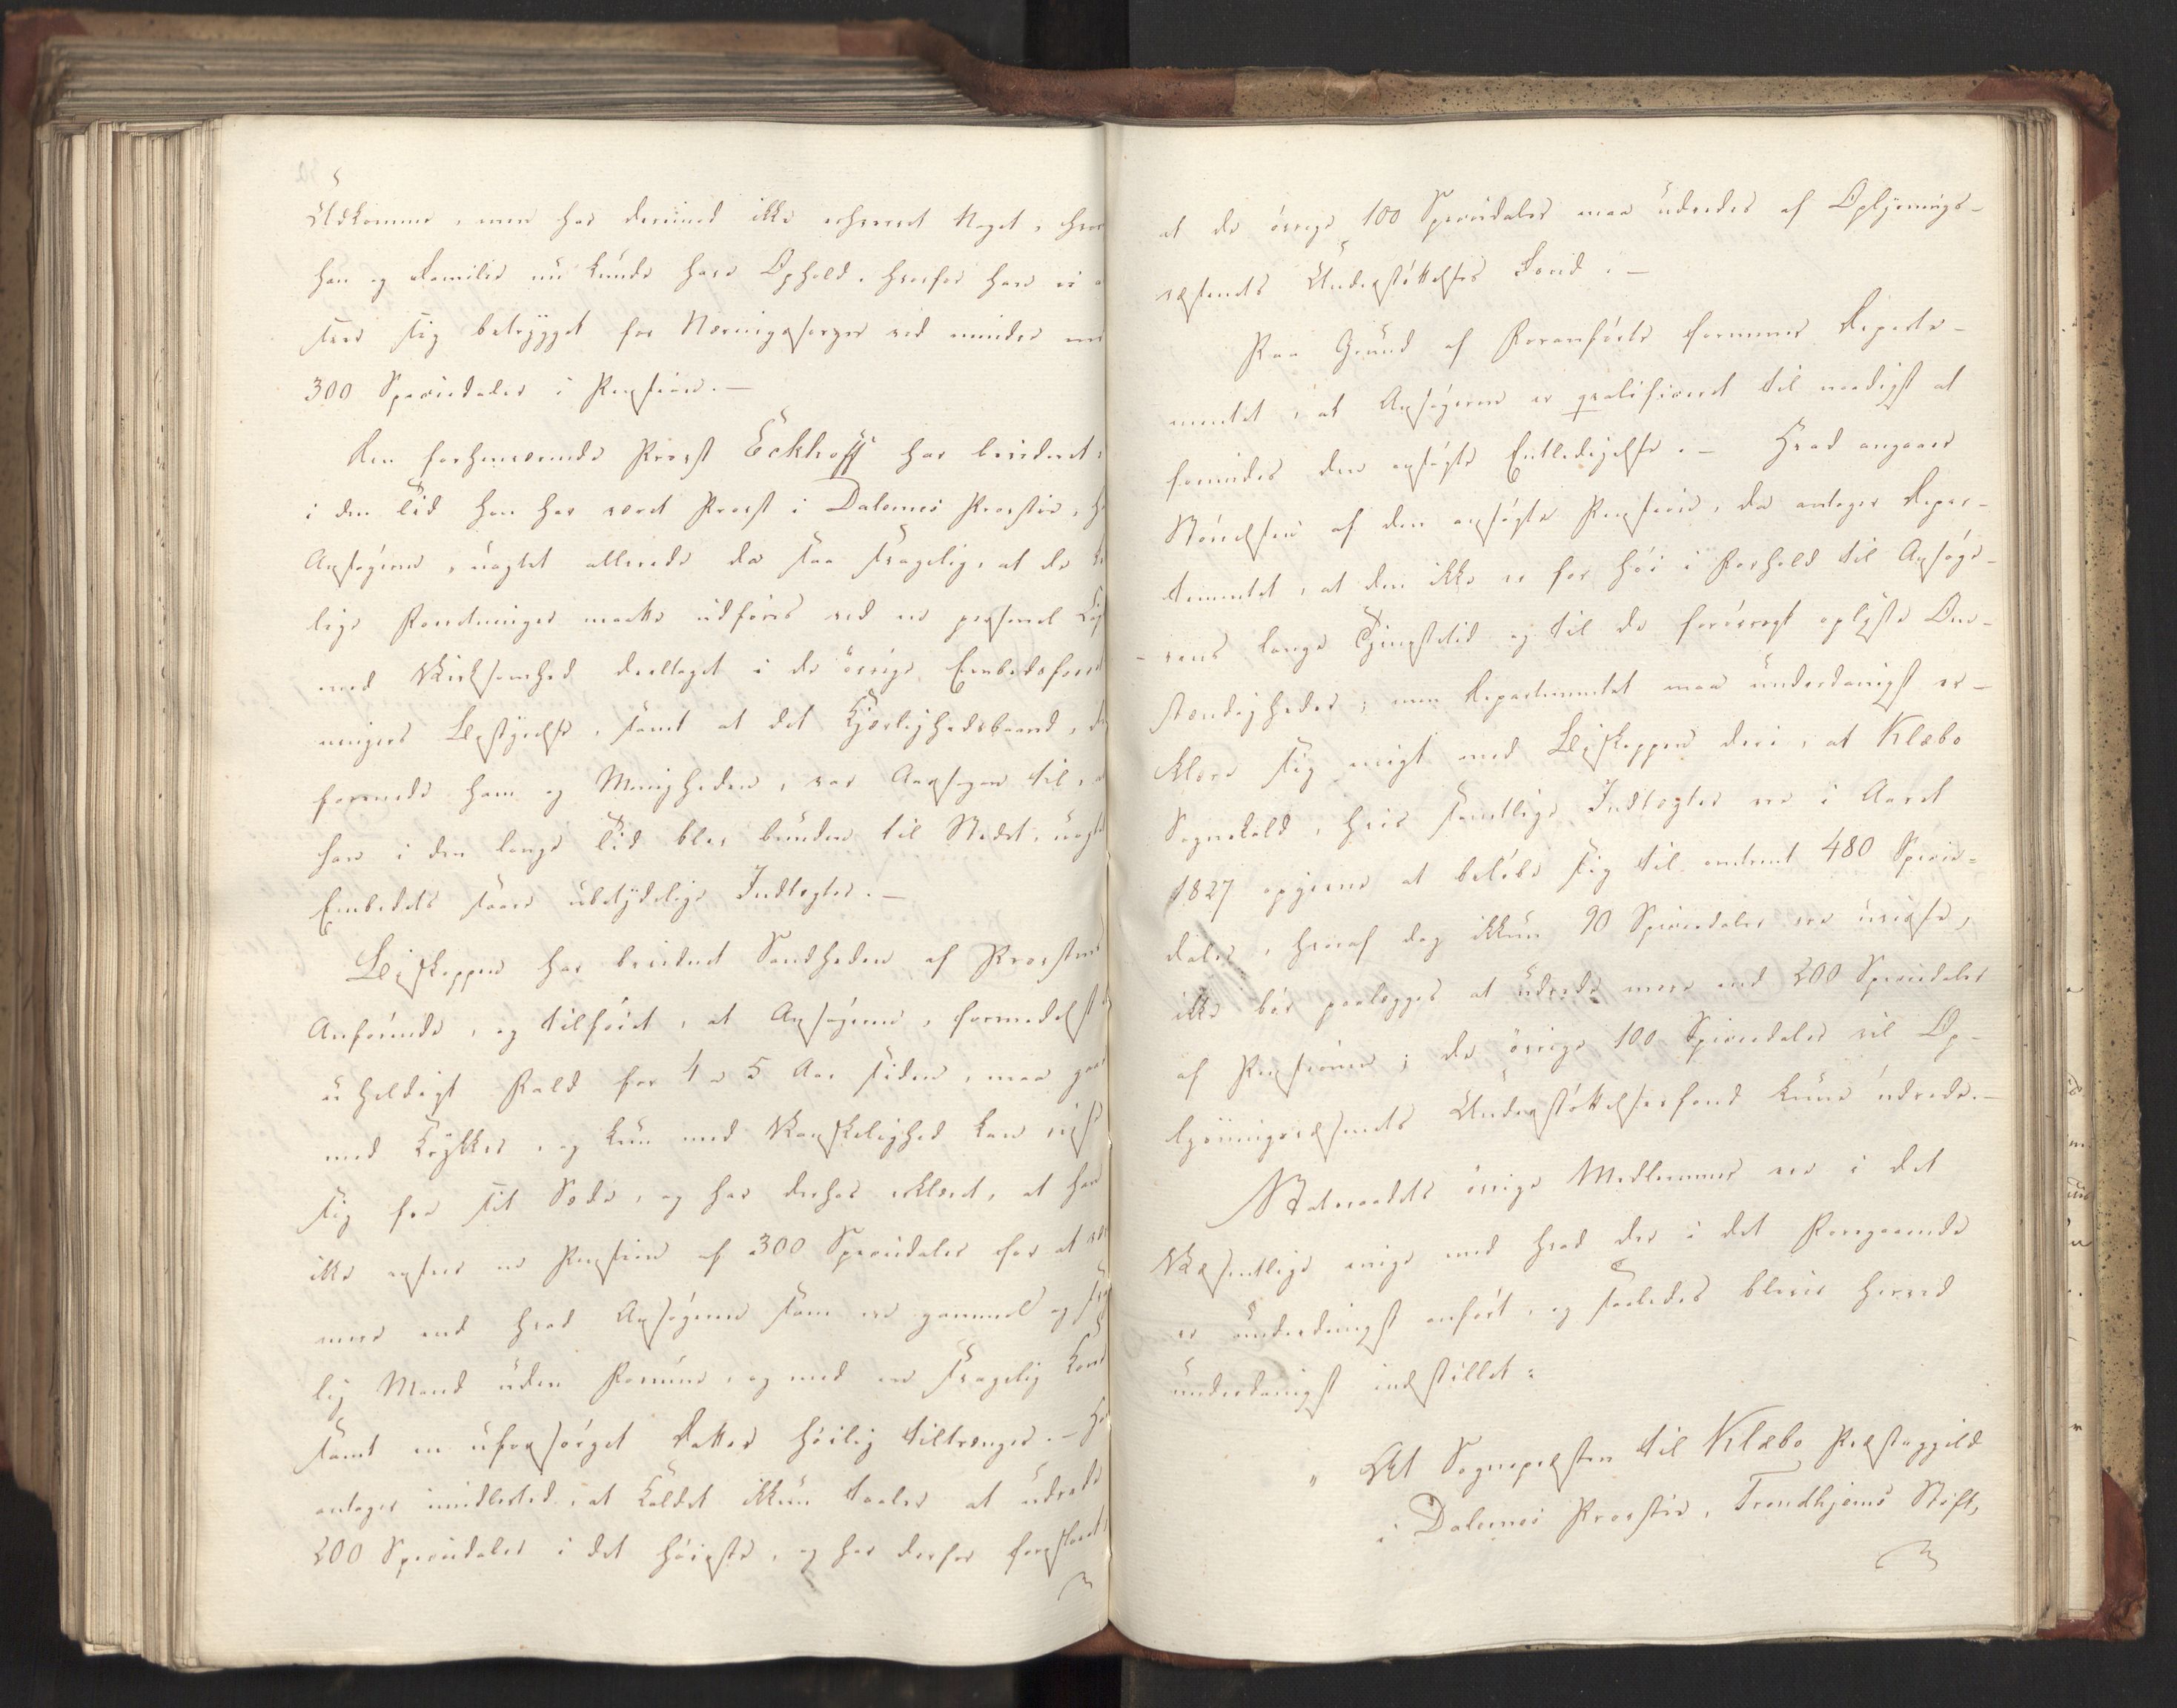 Udkomme, men har derimod ikke erhvervet Noget, hvor
han og Familie nu kunde have Ophold, hvorfor han ei
seer sig betrygget for Næringssorger ved mindre end
300 Speciedaler i Pension.—
Den forhenværende Provst Eckhoff har bevidnet,
i den Tid han har været Provst i Dalernes Provstie,
Ansøgeren, uagtet allerede da saa svagelig, at de
lige Forretninger maatte udføres ved en personel
med Virksomhed deeltaget i de øvrige Embedsforret
ningers Bestyrelse, samt at det Kjærlighedsbaand,
forenede ham og Menigheden, var Aarsagen til,
han i den lange Tid blev bunden til Stedet, uagtet
Embedets saare ubetydelige Indtægter.—
Biskoppen har bevidnet Sandheden af Provstens
Anførende, og tilføiet, at Ansøgeren, formedelst
uheldigt Fald for 4 a 5 Aar siden, maa gaae
med Krykker, og kun med Vanskelighed kan reise
sig fra sit Sæde, og har derhos erklæret, at han
ikke anseer en Pension af 300 Speciedaler for at være
mere end hvad Ansøgeren som en gammel og
lig Mand uden Formue, og med en svagelig Kone
samt en uforsørget Datter høilig tiltrænger.—
antager imidlertid, at Kaldet ikkun taaler at udrede
200 Speciedaler i det høieste, og har derfor foreslaaet,
at de øvrige 100 Speciedaler maa udredes af Oplysnings-
væsenets Understøttelses Fond.—
Paa Grund af Foranførte formener Departe-
mentet, at Ansøgeren er qvalificeret til naadigst at
forundes den ansøgte Entledigelse.— Hvad angaaer
Størrelsen af den ansøgte Pension, da antager Depar-
tementet, at den ikke er for høi i Forhold til Ansøge-
rens lange Tjenestetid og til de forøvrigt oplyste Om-
stændigheder; men Departementet maa underdanigst er-
klære sig enigt med Biskoppen deri, at Klæbo
Sognekald, hvis samtlige Indtægter ere i Aaret
1827 opgivne at beløbe sig til omtrent 480 Specie-
daler, hvoraf dog ikkun 90 Speciedaler ere uvisse,
ikke bør paalægges at udrede mere end 200 Speciedaler
af Pensionen; de øvrige 100 Speciedaler vil Op-
lysningsvæsenets Understøttelsesfond kunne udrede.—
Statsraadets øvrige Medlemmer ere i det
Væsentlige enige med hvad der i det Foregaaende
er underdanigst anført, og saaledes bliver herved
underdanigst indstillet:
" At Sognepræsten til Klæbo Præstegjeld
i Dalernes Provstie, Trondhjems Stift,